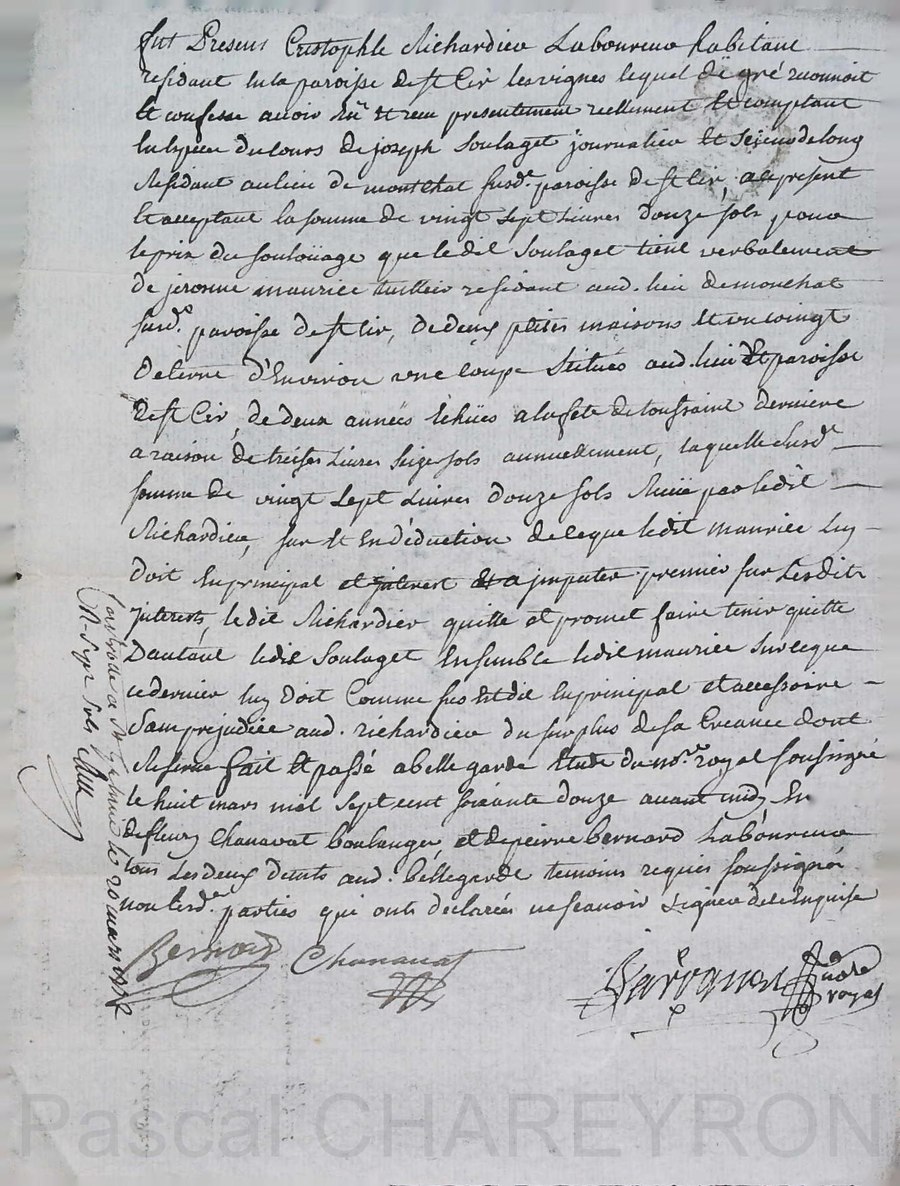 fut Present Cristophle Richardieu Laboureur habitant
residant en la paroisse de st Cir les vignes lequel de gré reconnoit
et confesse avoir Eü et receu presentement reellement et comptant
en Espece du cours de joseph Soulaget journalier et de long
Residant au lieu de montchat susde. paroisse de st Cir, a ce present
et acceptant la somme de vingt sept Livres douze sols pour
le prix du soulouage que le dit Soulaget tient verbalement
de jerosme maurice residant aud. lieu de monchat
susde. paroisse de st Cir, de deux ptites maisons et un
de terre d'Environ une coupe Situés aud. lieu et paroisse
de st Cir, de deux anneës Echües a la fete de toussaint derniere
a raison de treise Livres seize sols annuellement, laquelle susde.
somme de vingt sept Livres douze sols par le dit
Richardieu, sur et En déduction de ce que le dit maurice Luy
doit En principal et interest a imputer premier sur Les dits
interests, le dit Richardier quitte et promet faire tenir quitte
D'autant le dit Soulaget Ensemble le dit maurice sur ce que
ce dernier luy doit Comme sus Est dit En principal et accessoire
Sans prejudice aud. richardieu du surplus de sa Creance dont
Reserve fait et passé a bellegarde Etude du nore. royal soussigné
le huit mars mil sept cent soixante douze avant midy En
de fleury Chanavat boulanger et de peirre bernard Laboureur
tous Les deux dud. bellegarde temoins requis soussignés
non lesde. parties qui ont declareés ne scavoir signer de ce Enquise
Bernard Chanavat
nore
royal
Controlé a St Galmier le 20 mars 1772.
R. Sept sols
Pascal CHAREYRON